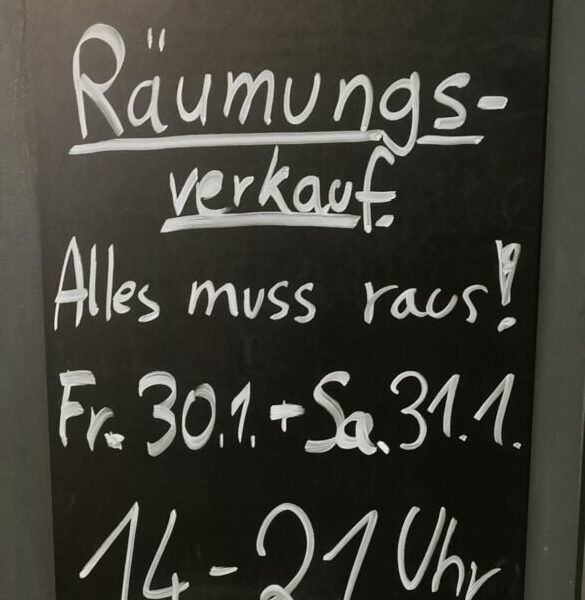 Räumungs-
verkauf.
Alles muss raus!
Fr. 30.1. + Sa. 31.1.
14 - 21 Uhr